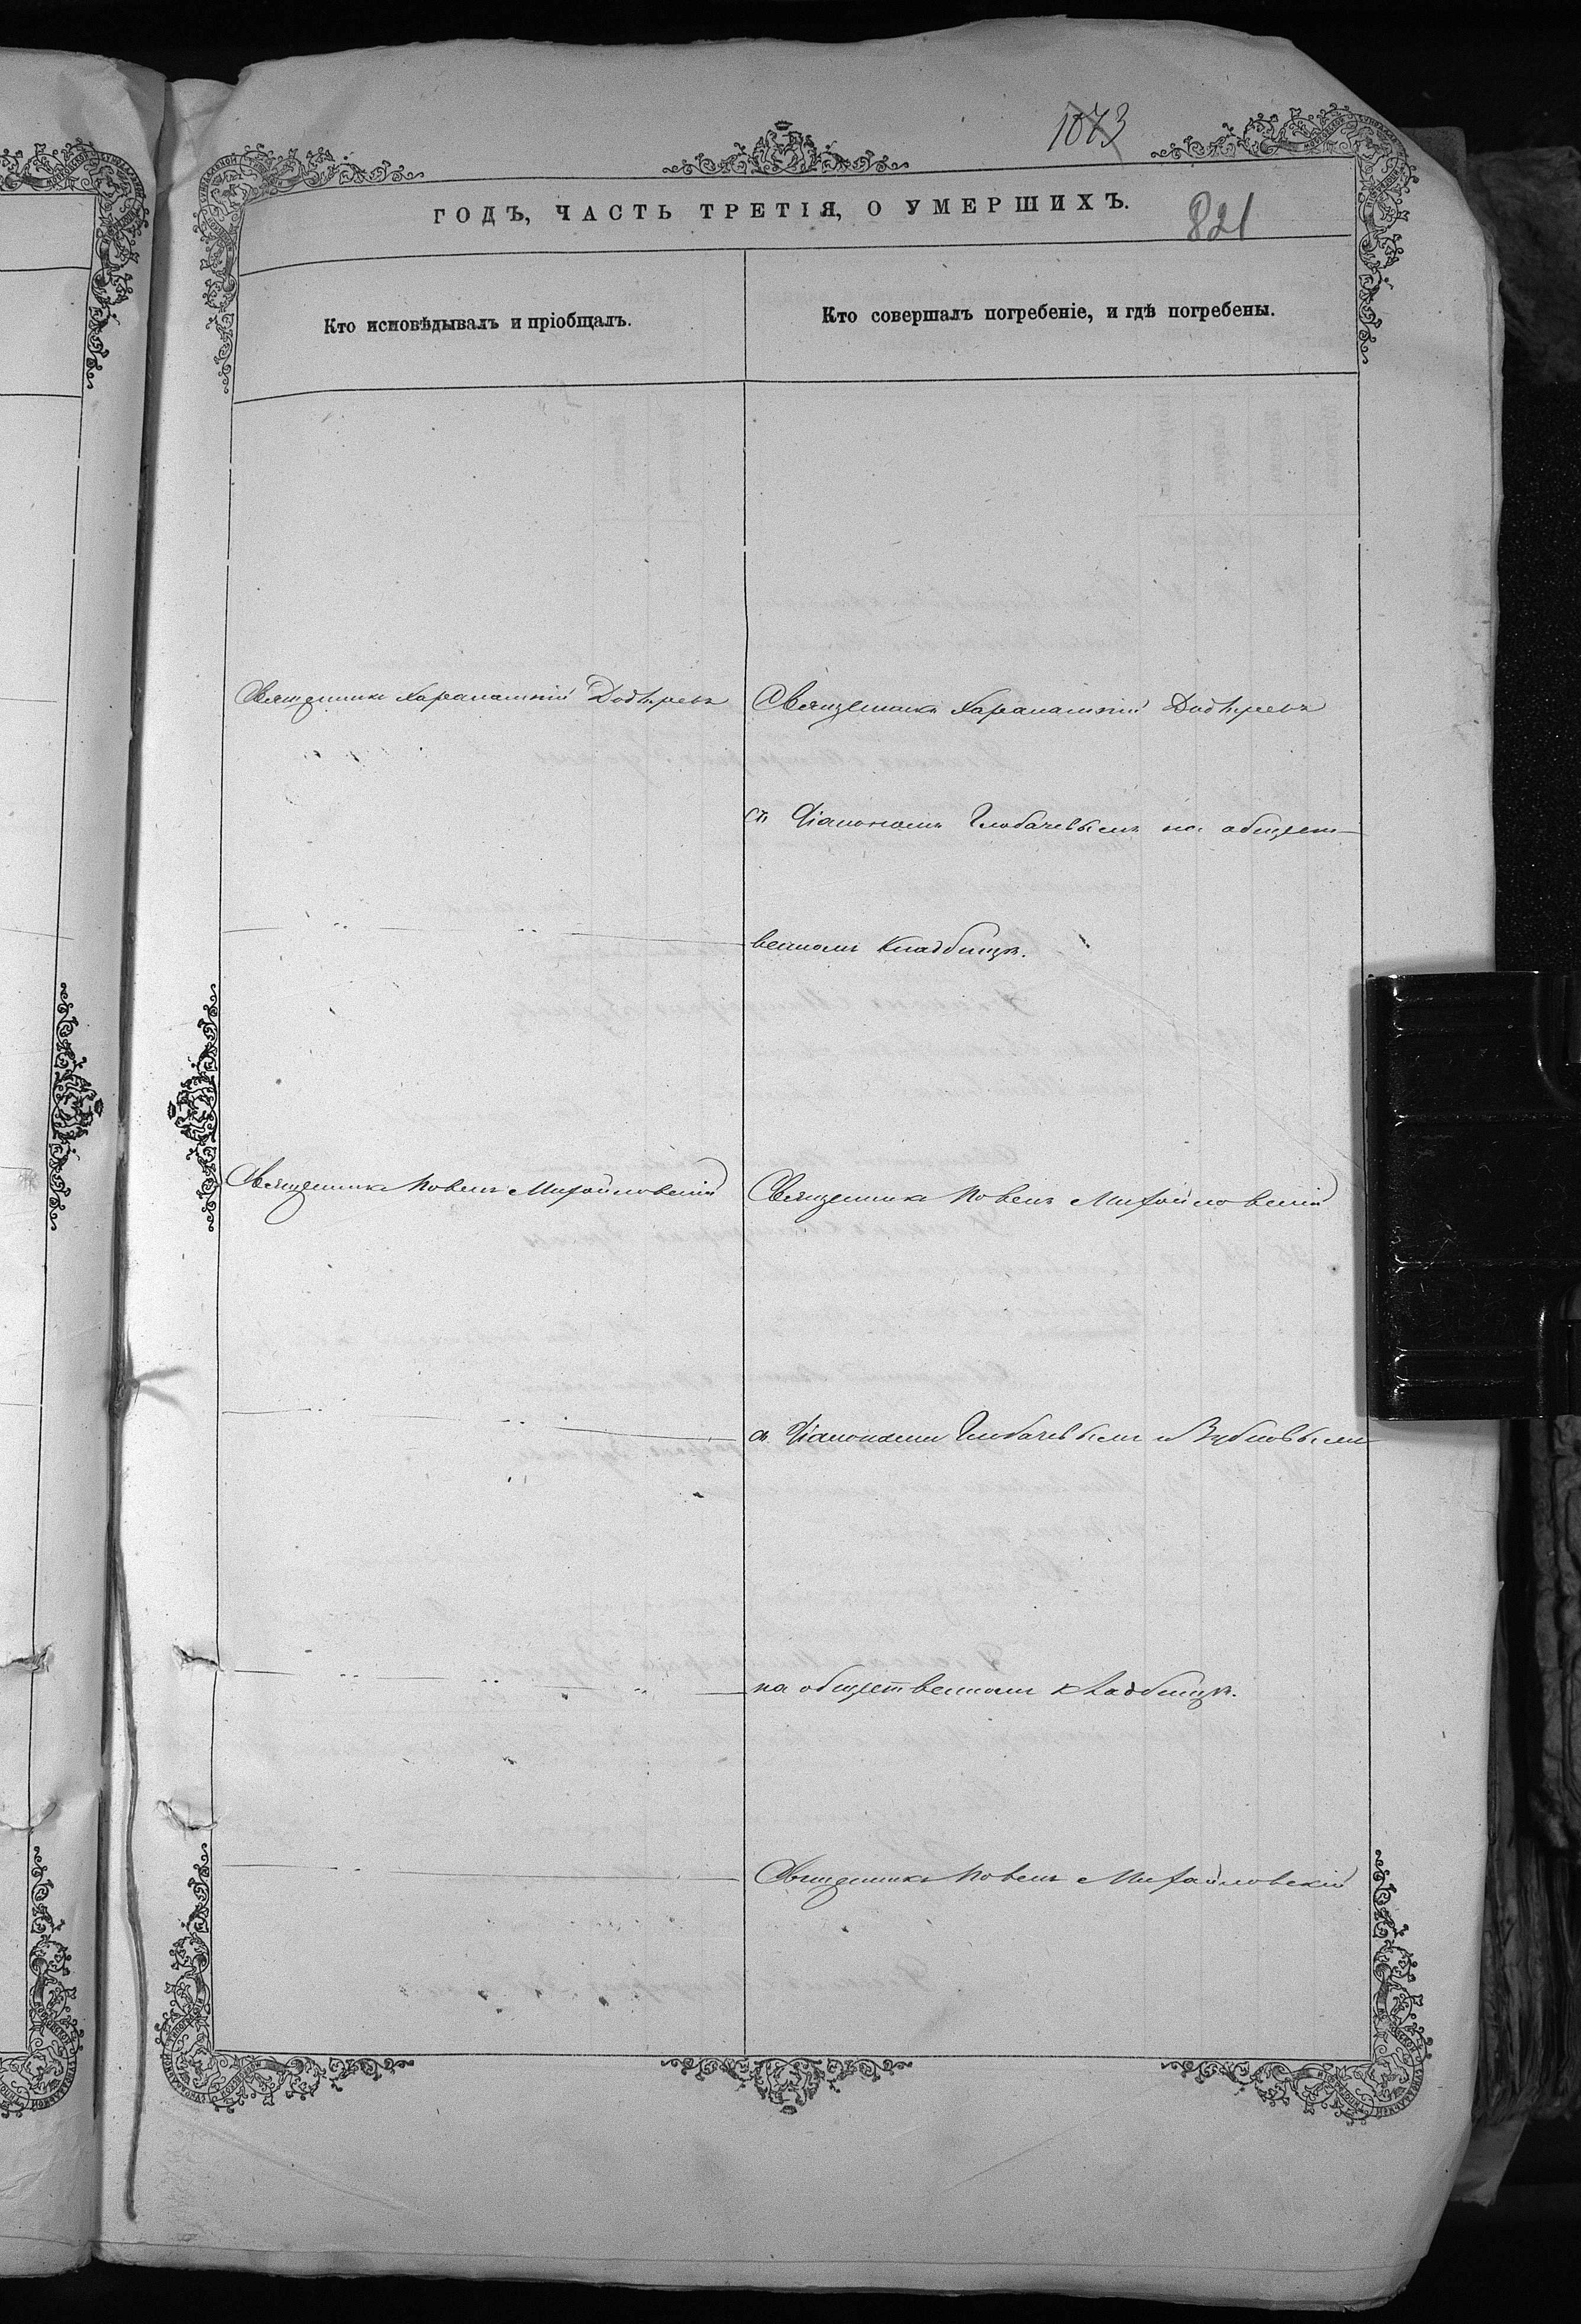 1073
ГОДЪ, ЧАСТЬ ТРЕТІЯ, О УМЕРШИХЪ.
821
Кто исповѣдывалъ и пріобщалъ.
Кто совершалъ погребеніе, и гдѣ погребены.
Священникъ Харалампій
Священникъ Харалампій
съ Діакономъ Глобачевымъ на общест-
веномъ кладбищѣ.
Священникъ Павелъ Михайловскій
Священникъ Павелъ Михайловскій
съ Діаконами Глобачевымъ и
на общественомъ кладбищѣ.
Священникъ Павелъ Михайловскій